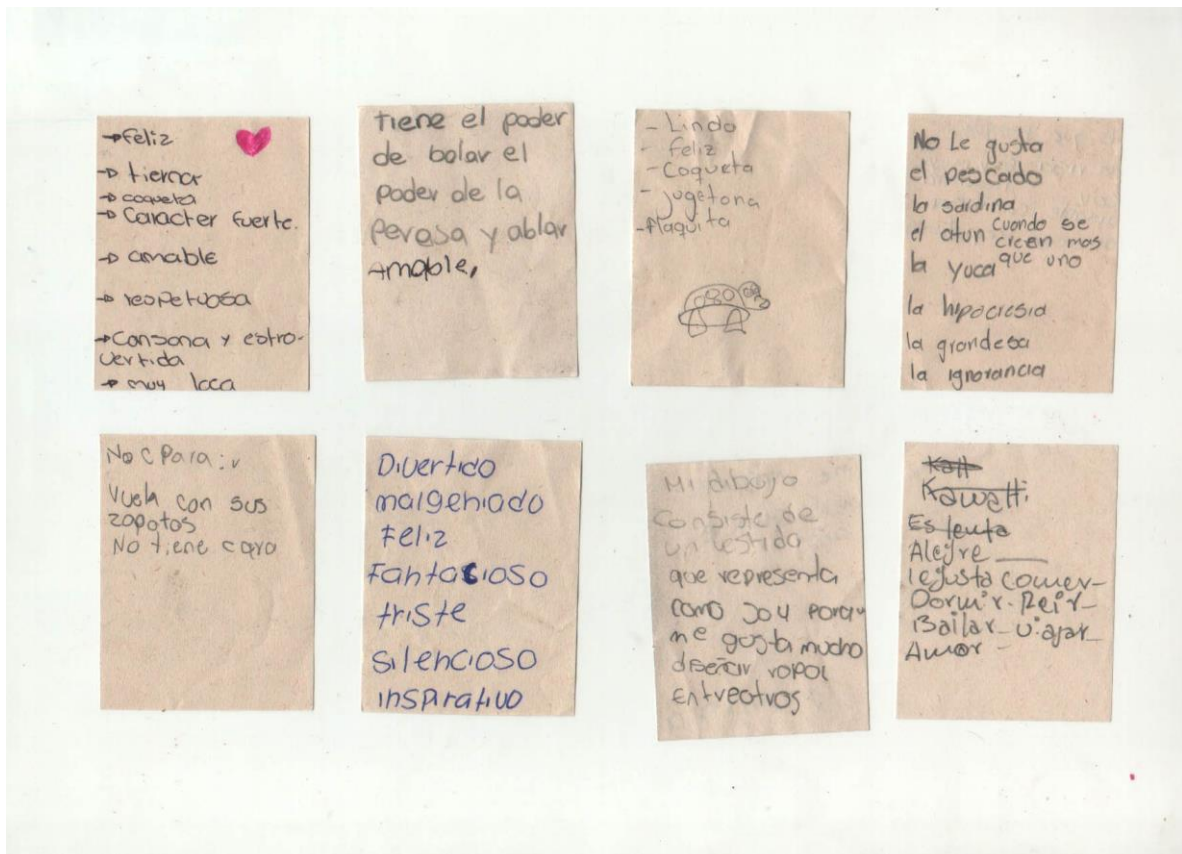 →Feliz
→tierna
→coqueta
→Caracter fuerte.
→amable
→respetuosa
→Cansona y estro-
vertida
→muy loca
tiene el poder
de bolar el
poder de la
Peresa y ablar
Amable,
- Lindo
- Feliz
- Coqueta
- Jugetona
- Flaquita
No Le gusta
el pescado
la sardina
el atun
la yuca
cuando se
creen mas
que uno
la hipocresia
la grandesa
la ignorancia
No c para :v
Vuela con sus
zapatos
No tiene cara
Divertido
malgeniado
Feliz
Fantacioso
triste
silencioso
inspirativo
Mi dibujo
consiste de
un vestido
que representa
como soy porqu
me gusta mucho
diseñar ropa
Entreotros
Es lenta
Alegre
le justa comer-
Dormir-Reir-
Bailar-viajar-
Amor-